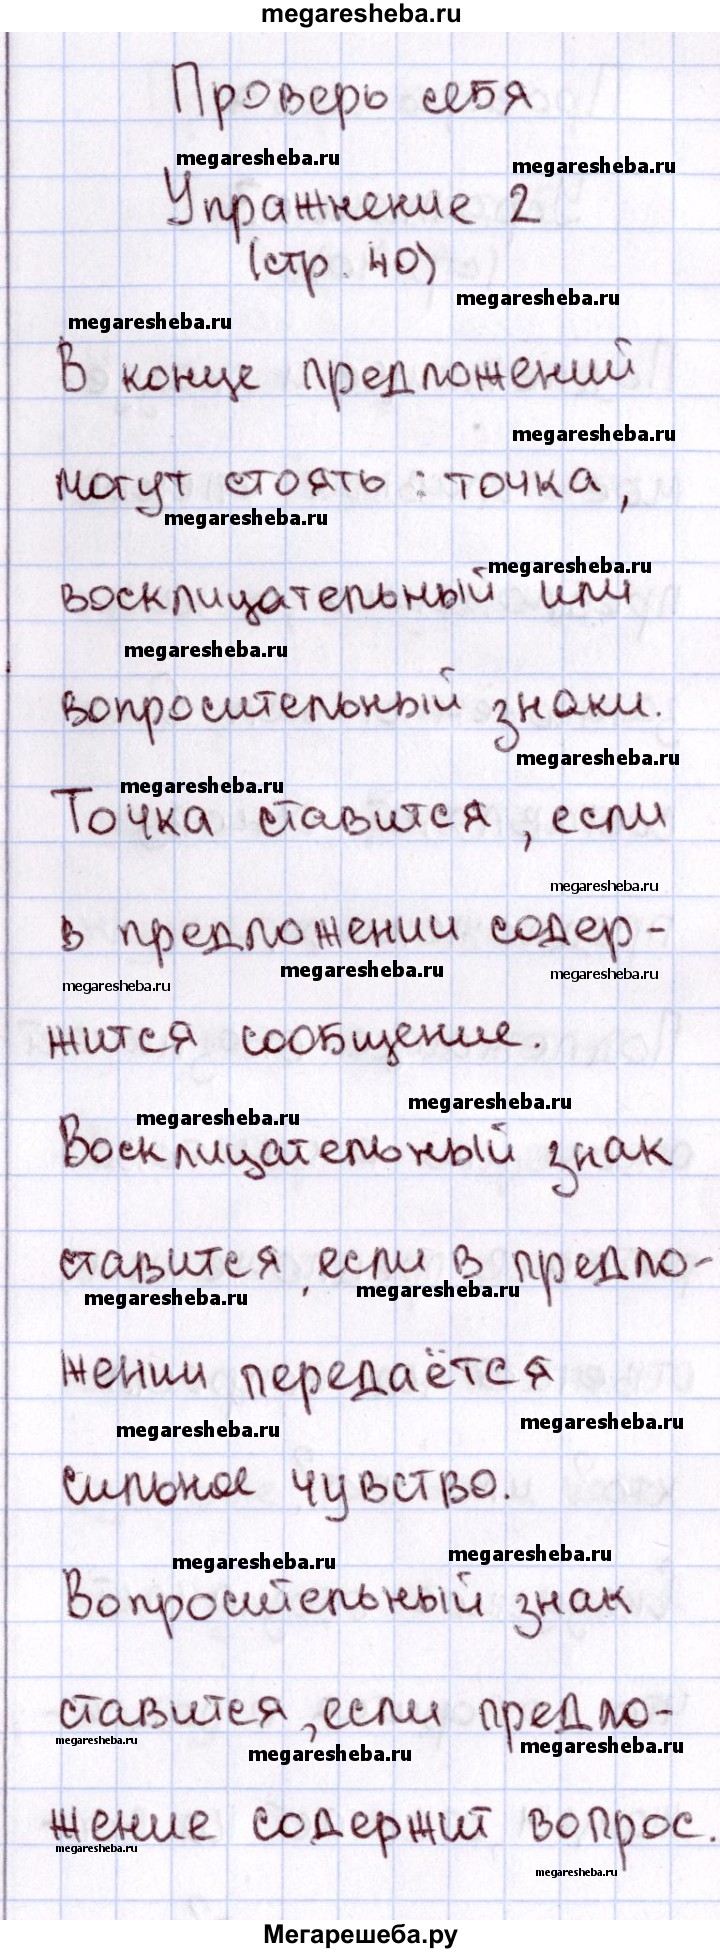 megaresheba.ru
Проверь себя
megaresheba.ru
megaresheba.ru
Упражнение 2
(стр. 40)
megaresheba.ru
megaresheba.ru
В конце предложений
megaresheba.ru
могут стоять: точка,
megaresheba.ru
megaresheba.ru
восклицательный или
megaresheba.ru
вопросительный знаки.
megaresheba.ru
megaresheba.ru
Точка ставится, если
megaresheba.ru
в предложении содер-
megaresheba.ru
megaresheba.ru
megaresheba.ru
жится сообщение.
megaresheba.ru
megaresheba.ru
Восклицательный знак
ставится, если в предло-
megaresheba.ru
megaresheba.ru
жении передаётся
megaresheba.ru
megaresheba.ru
сильное чувство.
megaresheba.ru
megaresheba.ru
Вопросительный знак
ставится, если предло-
megaresheba.ru
megaresheba.ru
megaresheba.ru
жение содержит вопрос.
megaresheba.ru
megaresheba.ru
Мегарешеба.ру